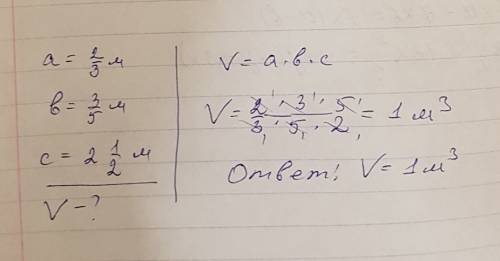 a = 2/3 м
в = 3/5 м
c = 2 1/2 м
V - ?
V = a · b · c
V = 2 · 3 · 5 / 3 · 5 · 2 = 1 м³
Ответ: V = 1 м³